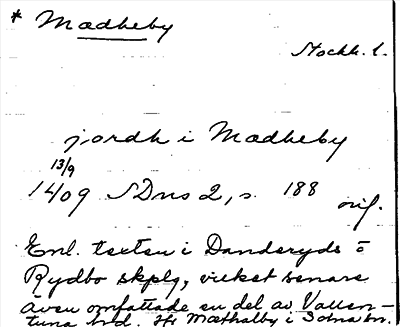 * Madheby
Stockh. l.
jordh i Madheby
13/9
1409 SDns 2, s. 188 orig.
Enl. texten i Danderyds o
Rydbo skplg, vilket senare
även omfattade en del av Vallen-
tuna hd. Hit Mæthalby i Solna sn.